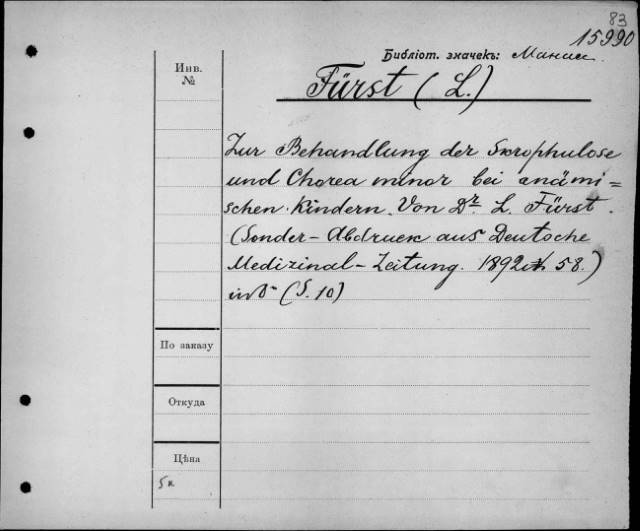 83
15990
Библіот. значекъ: Манасс.
Инв.
№
Fürst (L.)
Zur Behandlung der Skrophulose
und Chorea minor bei anämi=
schen Kindern. Von Dr. L. Fürst.
(Sonder-Abdruck aus Deutsche
Medizinal-Zeitung. 1892 № 58.)
in 8° (S. 10)
По заказу
Откуда
Цѣна
5к